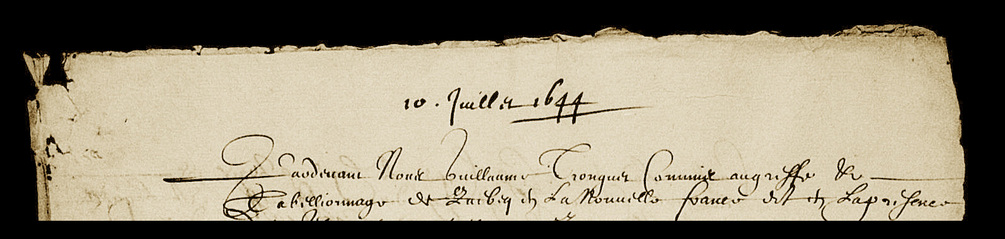 10. Juillet 1644
Pardevant Nous Guillaume Tronquet Commis au greffe &
Tabellionnage de Quebeq en La Nouvelle france et en La presence